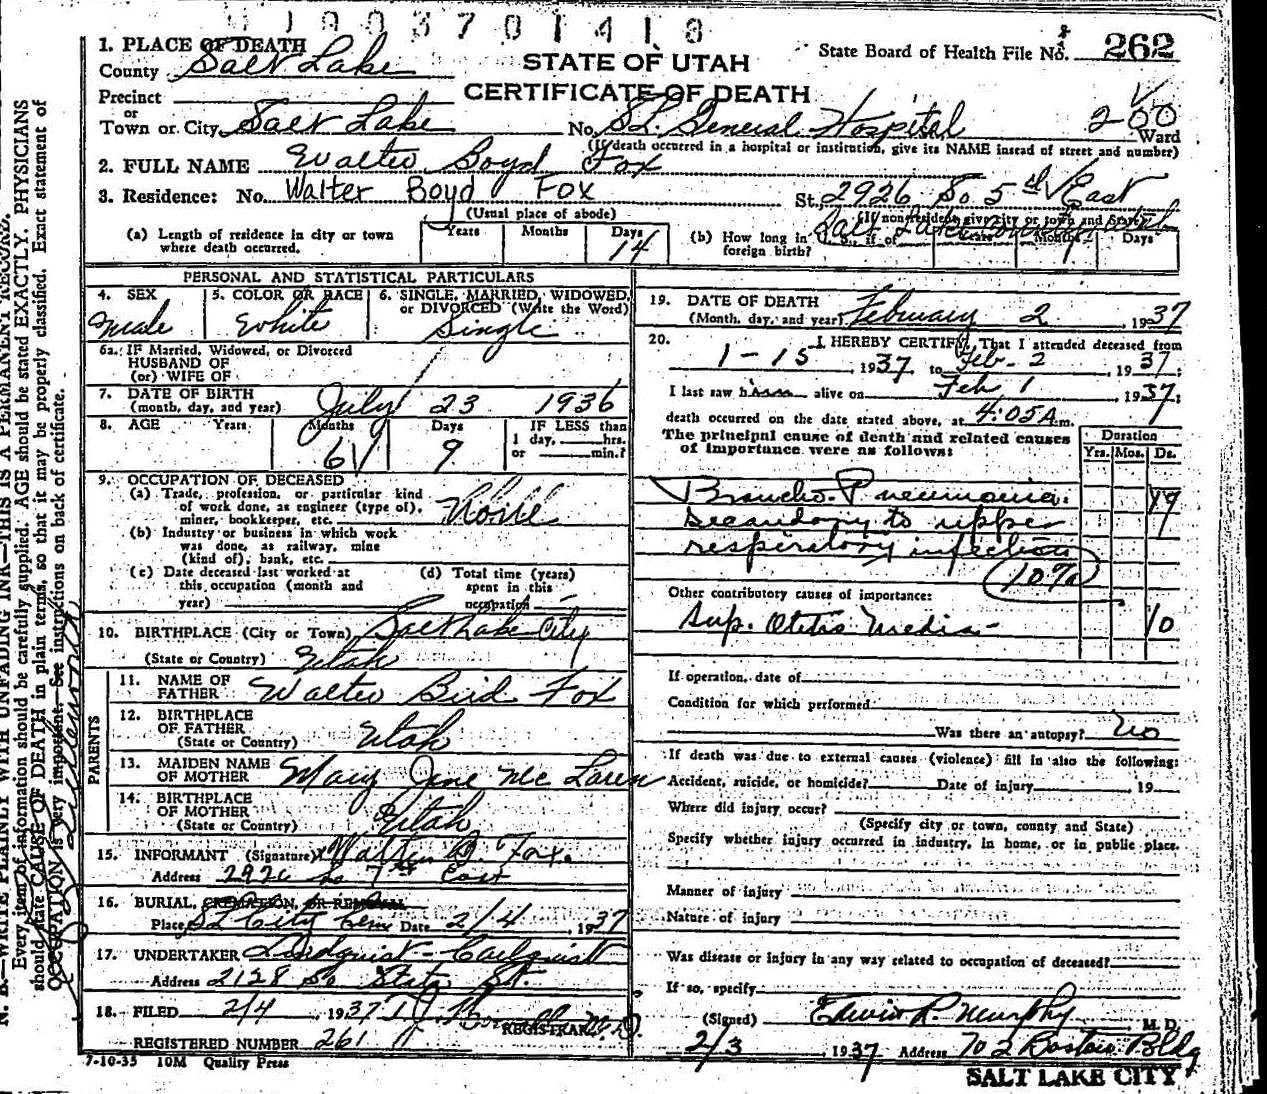 1003701418
1. PLACE OF DEATH
County Salt Lake
STATE OF UTAH
CERTIFICATE OF DEATH
State Board of Health File No. 262
Precinct
or
Town or City Salt Lake No. S.L. General Hospital 200 Ward
(If death occurred in a hospital or institution, give its NAME instead of street and number)
2. FULL NAME Walter Boyd Fox
3. Residence: No. Walter Boyd Fox St. 2926 So 5th East
(Usual place of abode) (If nonresident give city or town and State)
Salt Lake County Utah
(a) Length of residence in city or town where death occurred. Years Months Days 14
(b) How long in U. S., if of foreign birth? Years Months Days
PERSONAL AND STATISTICAL PARTICULARS
4. SEX Male
5. COLOR OR RACE White
6. SINGLE, MARRIED, WIDOWED, or DIVORCED (Write the Word) Single
6a. IF Married, Widowed, or Divorced
HUSBAND OF
(or) WIFE OF
7. DATE OF BIRTH
(month, day, and year) July 23 1936
8. AGE Years Months 6 Days 9 IF LESS than
1 day, hrs.
or min.?
9. OCCUPATION OF DECEASED
(a) Trade, profession, or particular kind
of work done, as engineer (type of),
miner, bookkeeper, etc. None
(b) Industry or business in which work
was done, as railway, mine
(kind of), bank, etc.
(c) Date deceased last worked at
this occupation (month and
year)
(d) Total time (years)
spent in this
occupation
10. BIRTHPLACE (City or Town) Salt Lake City
(State or Country) Utah
PARENTS
11. NAME OF
FATHER Walter Bird Fox
12. BIRTHPLACE
OF FATHER
(State or Country) Utah
13. MAIDEN NAME
OF MOTHER Mary Jane Mc Laren
14. BIRTHPLACE
OF MOTHER
(State or Country) Utah
15. INFORMANT (Signature) Walter B. Fox.
Address 2926 So 7th East
16. BURIAL, CREMATION, OR REMOVAL
Place S L City Cem Date 2/4, 1937
17. UNDERTAKER Lindquist - Carlquist
Address 2128 So State St.
18. FILED 2/4 1937 T. J. M.D.
REGISTRAR
REGISTERED NUMBER 261
7-10-35 10M Quality Press
19. DATE OF DEATH
(Month, day, and year) February 2, 1937
20. I HEREBY CERTIFY, That I attended deceased from
1-15, 1937, to Feb-2, 1937;
I last saw him alive on Feb 1, 1937;
death occurred on the date stated above, at 4:05 A m.
The principal cause of death and related causes
of importance were as follows:
Duration
Yrs. Mos. Ds.
Broncho-Pneumonia. 19
Secondary to upper
respiratory infection
107a
Other contributory causes of importance:
Sup. Otitis Media- 10
If operation, date of
Condition for which performed
Was there an autopsy? No
If death was due to external causes (violence) fill in also the following:
Accident, suicide, or homicide? Date of injury, 19
Where did injury occur?
(Specify city or town, county and State)
Specify whether injury occurred in industry, in home, or in public place.
Manner of injury
Nature of injury
Was disease or injury in any way related to occupation of deceased?
If so, specify
(Signed) Edwin R. Murphy M. D.
2/3, 1937 Address 702 Boston Bldg
SALT LAKE CITY
N. B.—WRITE PLAINLY WITH UNFADING INK—THIS IS A PERMANENT RECORD.
Every item of information should be carefully supplied. AGE should be stated EXACTLY. PHYSICIANS
should state CAUSE OF DEATH in plain terms, so that it may be properly classified. Exact statement of
OCCUPATION is very important. See instructions on back of certificate.